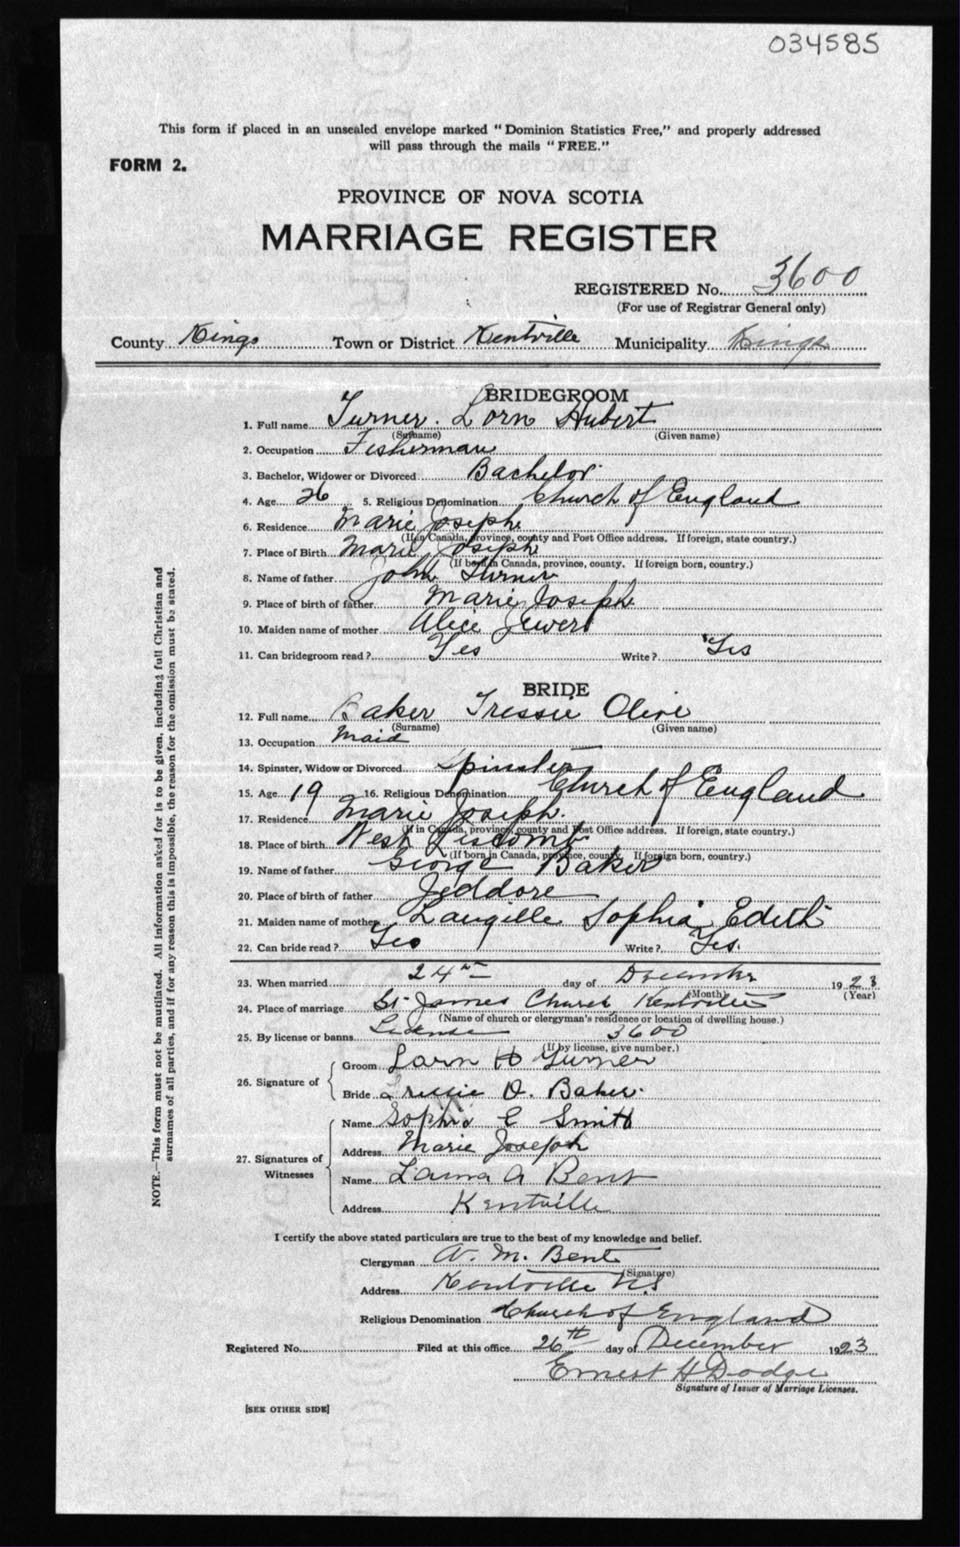 034585
This form if placed in an unsealed envelope marked "Dominion Statistics Free," and properly addressed
will pass through the mails "FREE."
FORM 2.
PROVINCE OF NOVA SCOTIA
MARRIAGE REGISTER
REGISTERED No. 3600
(For use of Registrar General only)
County Kings Town or District Kentville Municipality Kings
BRIDEGROOM
1. Full name Turner. Lorn Hubert
(Surname) (Given name)
2. Occupation Fisherman
3. Bachelor, Widower or Divorced Bachelor
4. Age 26 5. Religious Denomination Church of England
6. Residence Marie Joseph
(If in Canada, province, county and Post Office address. If foreign, state country.)
7. Place of Birth Marie Joseph
(If born in Canada, province, county. If foreign born, country.)
8. Name of father John Turner
9. Place of birth of father Marie Joseph
10. Maiden name of mother Alice Jewers
11. Can bridegroom read? Yes Write? Yes
BRIDE
12. Full name Baker Tressie Olive
(Surname) (Given name)
13. Occupation Maid
14. Spinster, Widow or Divorced Spinster
15. Age 19 16. Religious Denomination Church of England
17. Residence Marie Joseph.
(If in Canada, province, county and Post Office address. If foreign, state country.)
18. Place of birth West Liscomb
(If born in Canada, province, county. If foreign born, country.)
19. Name of father George Baker
20. Place of birth of father Jeddore
21. Maiden name of mother Langille Sophia Edith
22. Can bride read? Yes Write? Yes.
23. When married 24th day of December 1923
(Month) (Year)
24. Place of marriage St James Church Kentville
(Name of church or clergyman's residence or location of dwelling house.)
25. By license or banns License 3600
(If by license, give number.)
26. Signature of
Groom Lorn H Turner
Bride Tressie O. Baker.
27. Signatures of Witnesses
Name Sophia E Smith
Address Marie Joseph
Name Laura A Bent
Address Kentville
I certify the above stated particulars are true to the best of my knowledge and belief.
Clergyman A. M. Bent
(Signature)
Address Kentville N.S
Religious Denomination Church of England
Registered No. Filed at this office 26th day of December 1923
Ernest H Dodge
Signature of Issuer of Marriage Licenses.
[SEE OTHER SIDE]
NOTE.—This form must not be mutilated. All information asked for is to be given, including full Christian and
surnames of all parties, and if for any reason this is impossible, the reason for the omission must be stated.